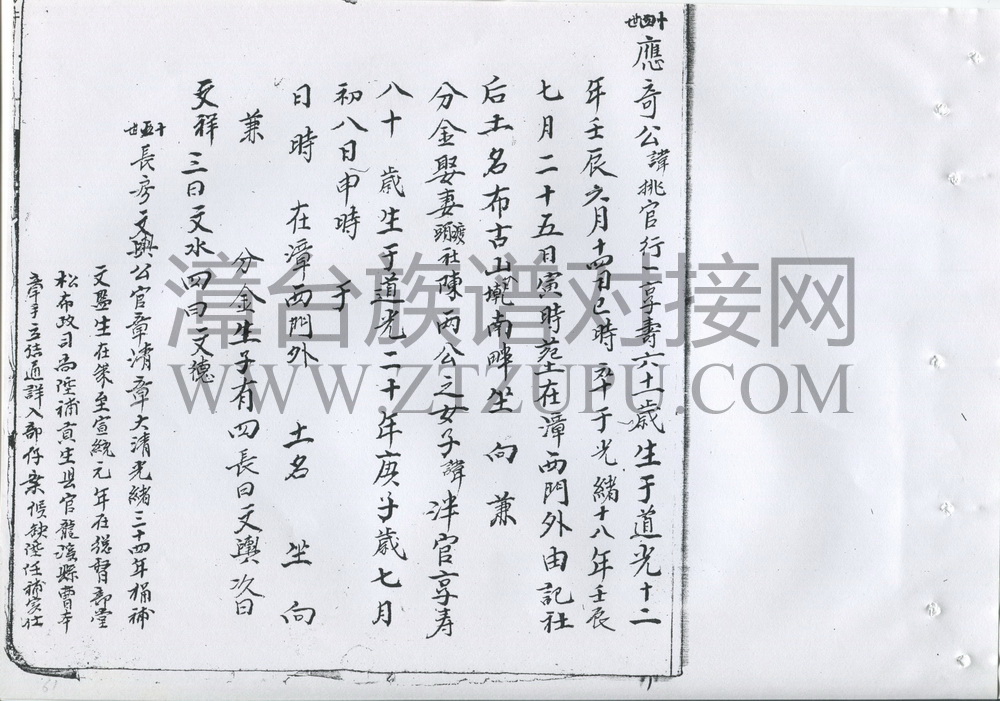 十四世
應奇公諱挑官行一享壽六十一歲生于道光十二
年壬辰六月十四日巳時卒于光緒十八年壬辰
七月二十五日寅時葬在漳西門外由記社
后土名布古山墘南畔坐向兼
分金娶妻渡頭社陳两公之女子諱泮官享寿
八十歲生于道光二十年庚子歲七月
初八日申時于
日時在漳西門外土名坐向
兼分金生子有四長曰文輿次曰
文祥三曰文水四曰文德
十五世
長房文輿公官章清章大清光緒三十四年捐補
文生在案至宣統元年在總督部堂
松布政司尚陞補貢生縣官龍溪縣曹本
立結通詳入部存案候缺陞任補實仕
漳台族谱对接网
WWW.ZTZUPU.COM